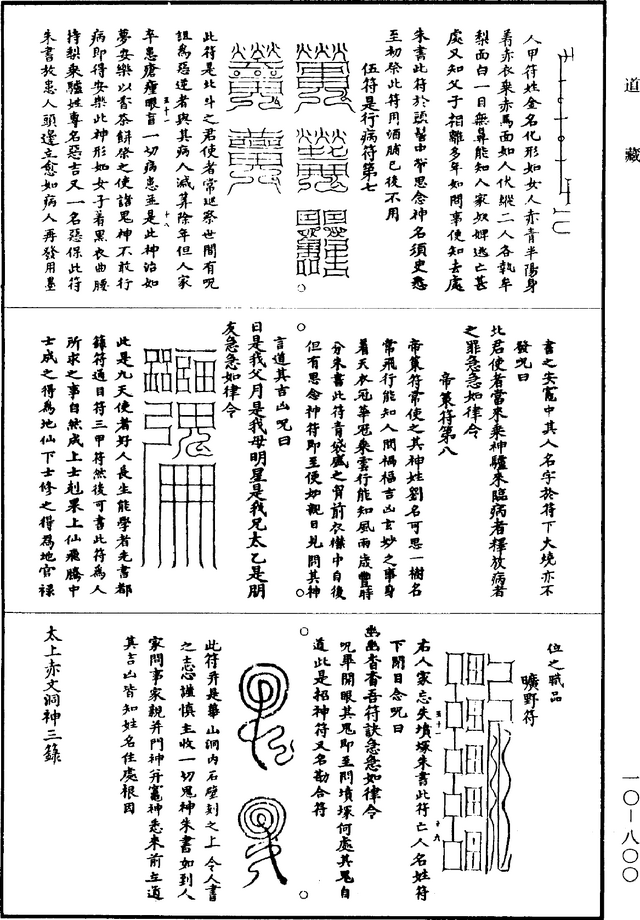 道藏
人甲符姓金名化形如女人亦青半陽身
著赤衣乘赤馬面如人伏縱二人各執牟
梨面白一目無鼻能知人家奴婢逃亡甚
處又知父子相離多年如問事使知去處
朱書此符於頭髻中帶思念神名須臾悉
至初祭此符用酒脯已後不用
伍符是行病符第七
此符是北斗之君使者常巡察世間有呪
詛為惡逆者與其病人減算除年但人家
卒患瘡瘇眼盲一切病患並是此神治如
五十一
十八
夢安樂以香茶餅祭之使諸鬼神不敢行
病即得安樂此神形如女子着黑衣曲腰
持梨乘驢姓尊名惡吉又一名惡保此符
朱書放患人頭邊立愈如病人再發用墨
書之安竈中其人名字於符下火燒亦不
發呪曰
北君使者當來乘神驢來臨病者釋放病者
之罪急急如律令
帝策符第八
帝策符常使之其神姓劉名可思一樹名
常飛行能知人間禍福吉凶玄妙之事身
着天衣冠華冠乘雲行能知風雨歲豐時
分朱書此符青袋盛之齊前衣襟中自後
但有思念神符即至便如親日見問其神
言道其吉凶呪曰
日是我父月是我母明星是我兄太乙是朋
友急急如律令
此是九天使者好人長生能學者先書都
籙符通目符三甲符然後可書此符為人
所求之事自然成上士剋果上仙飛騰中
士成之得為地仙下士修之得為地官祿
位之職品
曠野符
右人家忘失墳塚朱書此符亡人名姓符
五十一
十九
下閉目念呪曰
幽幽杳杳吾符訣急急如律令
呪畢開眼其鬼即至問墳塚何處其鬼自
道此是招神符又名勘合符
此符并是華山洞內石壁刻之上令人書
之志心謹慎主收一切鬼神朱書如到人
家問事家親并門神并竈神悉來前立道
其言凶皆知姓名住處根因
太上赤文洞神三籙
一〇—八〇〇